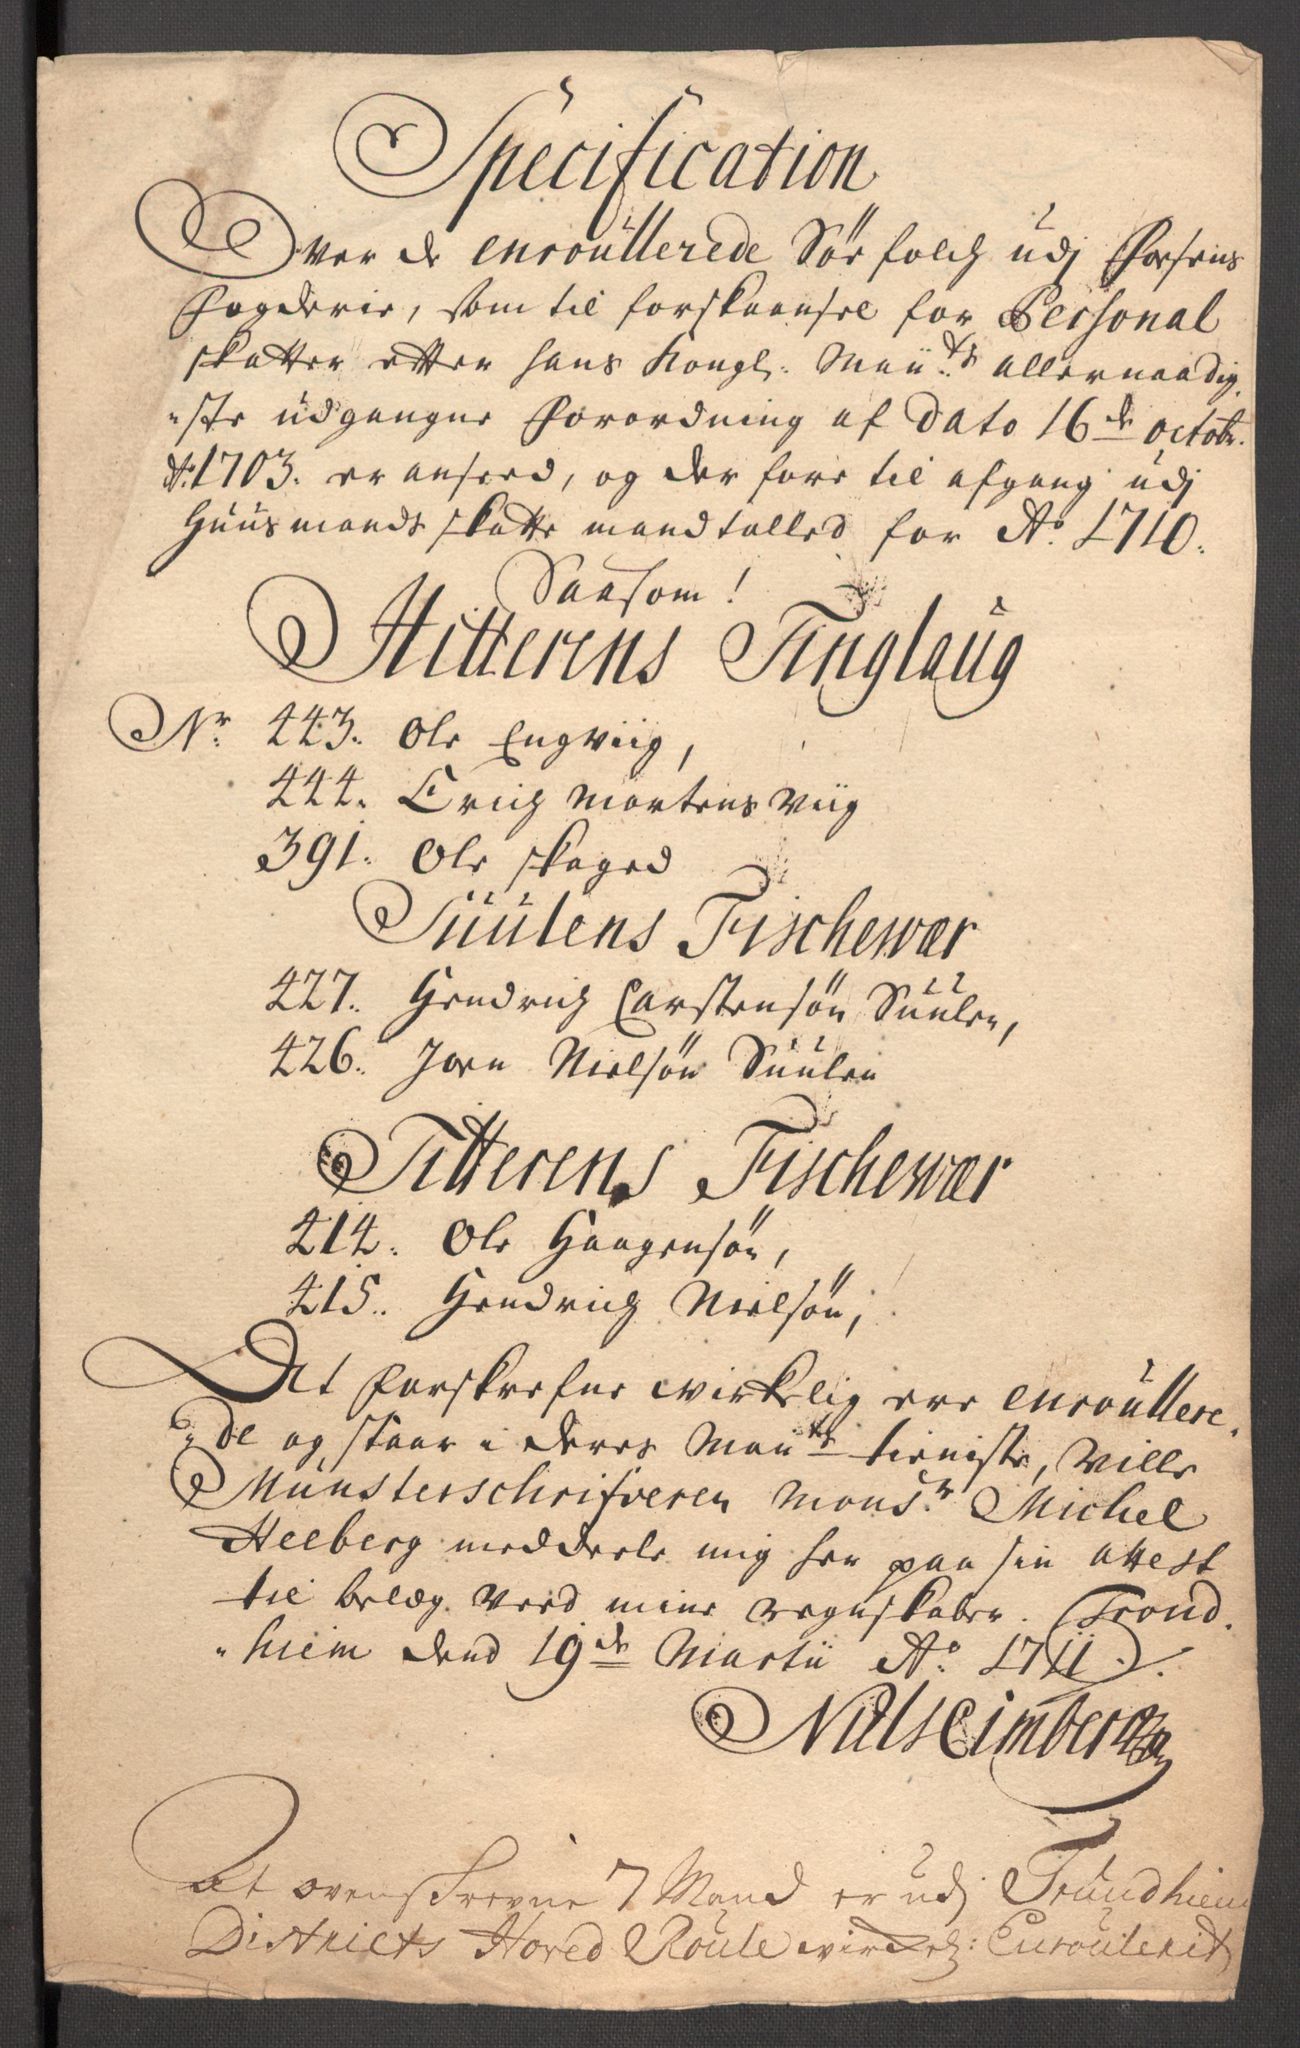 Specification
Over de enroullerede Söe folch udj Fosens
Fogderie, som til forskaansel for Personal
skatter etter hans Kongl: May:ts allernaadig,
„ste udgangne Forordning af Dato 16de octobr.
Ao: 1703. er anseed, og der fore til afgang udj
Huusmands skatte mandtalled for Ao. 1710.
Saasom!
Hitterens Tinglaug
Nr. 443. Ole Engviig,
444. Erich Mortens Viig
391. Ole Skaged
Suulens Fischewær
427. Hendrich Carstensön Suulen,
426. Joen Nielsön Suulen
Titterens Fischewær
414. Ole Haagensön,
415. Hendrich Nielsön,
At forskrefne wirkelig ere enroullere,
„de og staar i deres May:ts tieniste, wille
Münsterschrifveren Monsr. Michel
Heeberg meddeele mig her paa sin attest
til belæg veed mine regnskaber. Trond,
„hiem dend 19de Martii Ao. 1711.
Niels Cimber
At ovenskrevne 7 Mand er udj Trundhiem
Districts Hoved Roule wirkel: Enrouleret